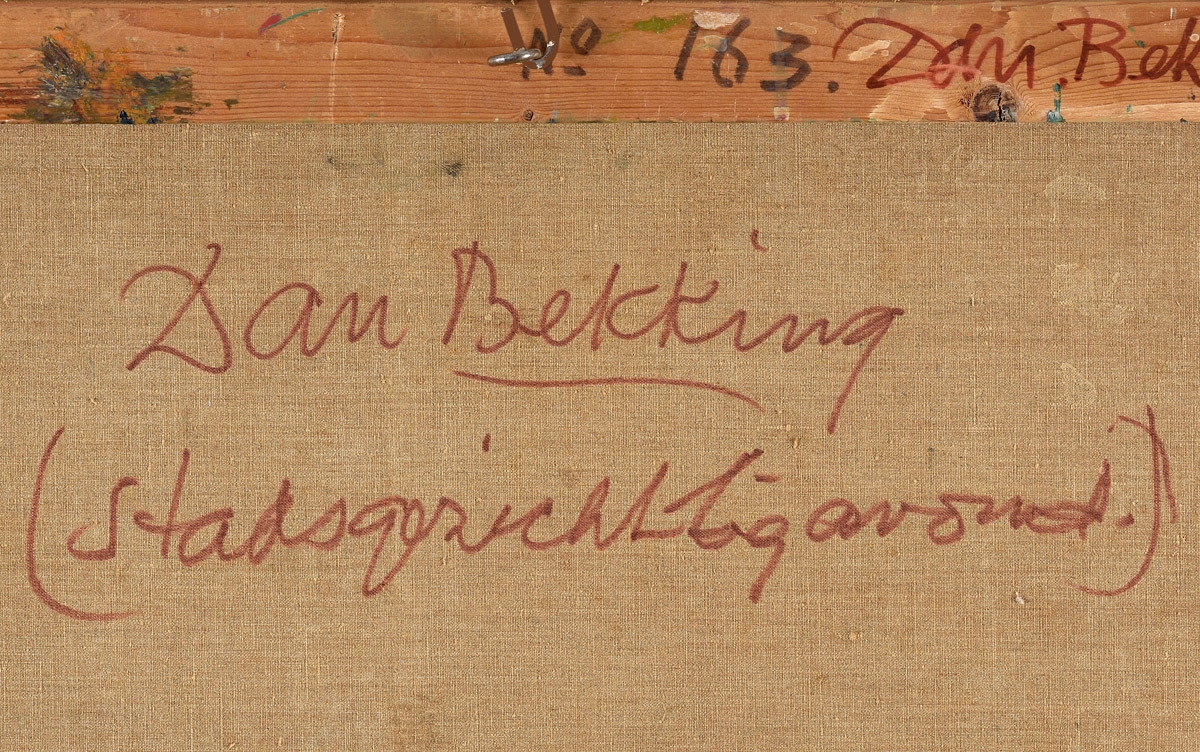 No 163. Dan Bek
Dan Bekking
(Stadsgezicht bij avond.)